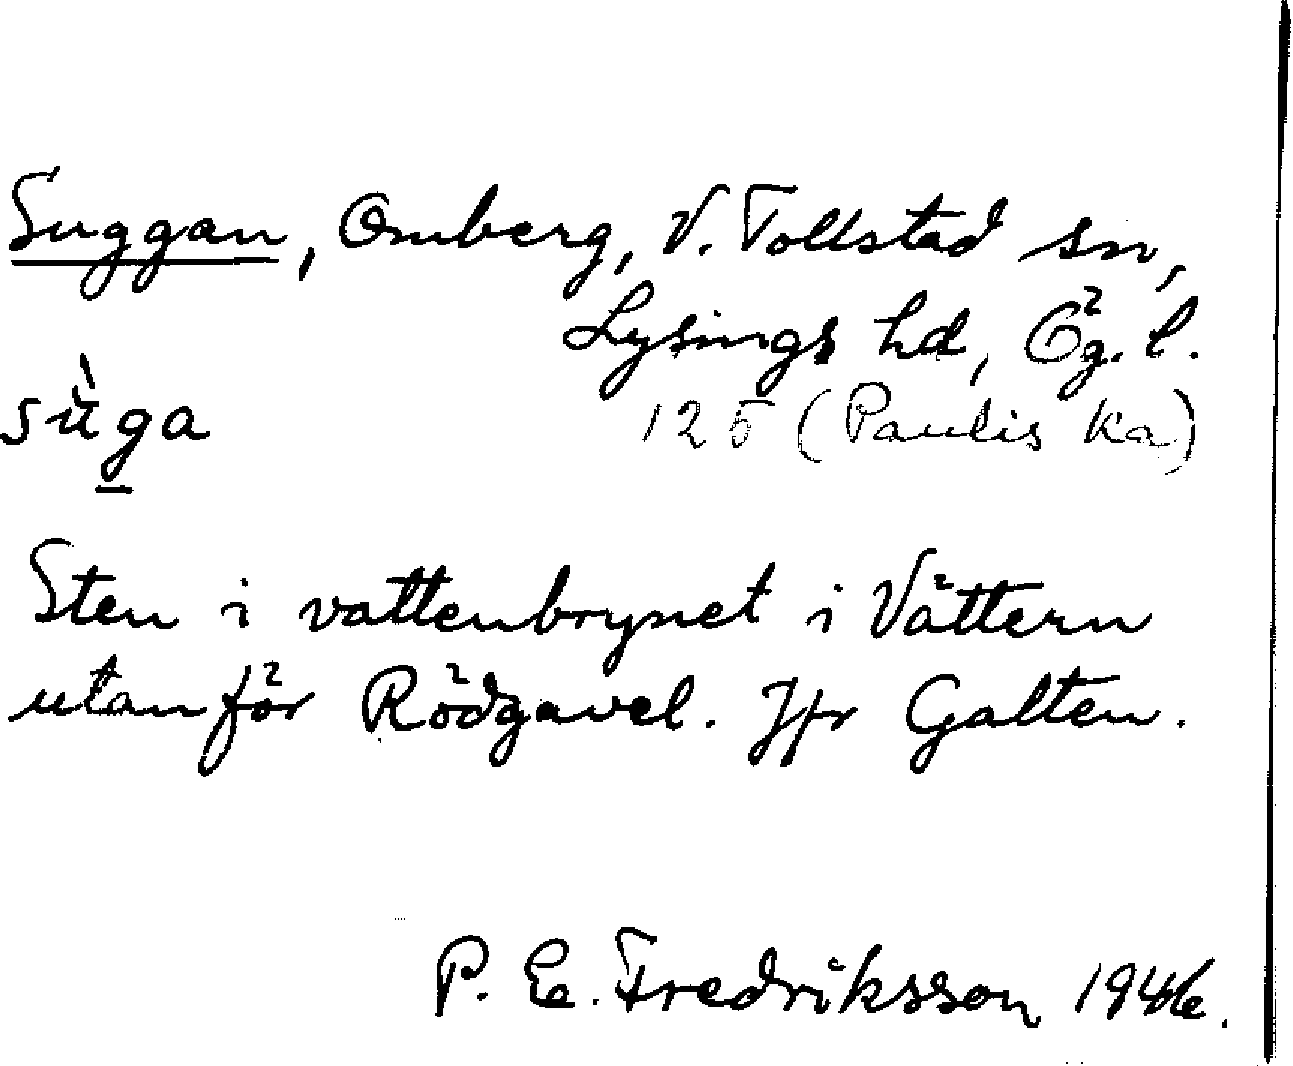 Suggan, Omberg, V. Tollstad sn,
Lysings hd, Ög. l.
sùga
125 (Paulis ka)
Sten i vattenbrynet i Vättern
utanför Rödgavel. Jfr Galten.
P. E. Fredriksson 1946.